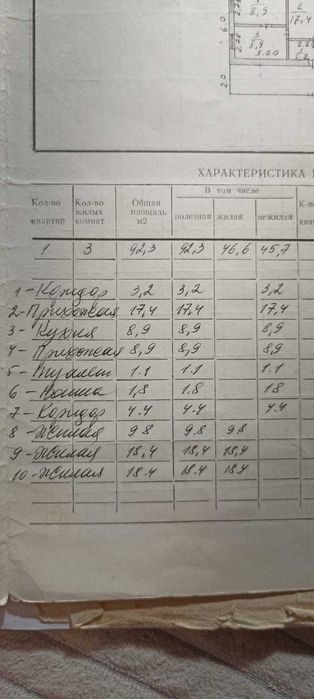 1
8,9
2
17,4
3
8,9
3.20
6.0
2.0
ХАРАКТЕРИСТИКА
Кол-во квартир Кол-во жилых комнат Общая площадь м2 В том числе
полезная жилая нежилая
1 3 92,3 92,3 46,6 45,7
1 - Коридор 3,2 3,2 3,2
2 - Прихожая 17,4 17,4 17,4
3 - Кухня 8,9 8,9 8,9
4 - Прихожая 8,9 8,9 8,9
5 - Туалет 1.1 1.1 1.1
6 - Ванна 1,8 1.8 1.8
7 - Коридор 4.4 4.4 4.4
8 - Жилая 9.8 9.8 9.8
9 - Жилая 18,4 18,4 18,4
10 - Жилая 18.4 18.4 18.4